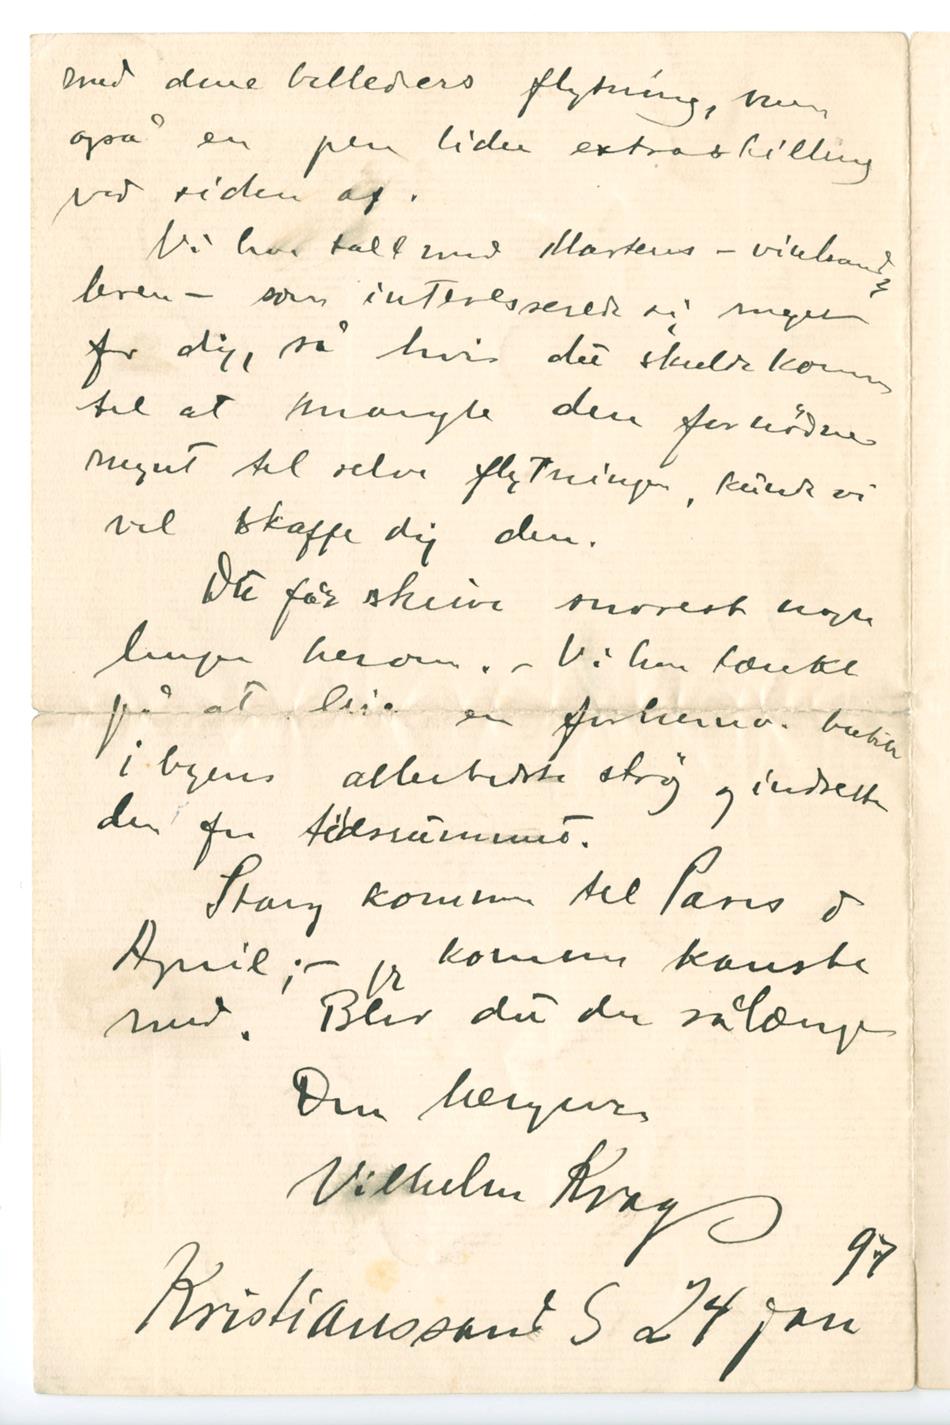 med dine billeders flytning, men
også en pen liden extraskilling
ved siden af.
Vi har talt med Martens – vinhand
leren – som interesserede sig meget
for dig, så hvis du skulde komme
til at mangle den fornødne
mynt til selve flytningen, kunde vi
vel skaffe dig den.
Du får skrive snarest nogle
linjer herom. – Vi har tænkt
på at leie en forhenv. butik
i byens allerbedste strøg og indrette
den for tidsrummet.
Stang kommer til Paris i
April; – jeg kommer kanske
med. Bliv du der sålænge
Din hengivne
Vilhelm Krag
Kristianssand S 24 jan 97